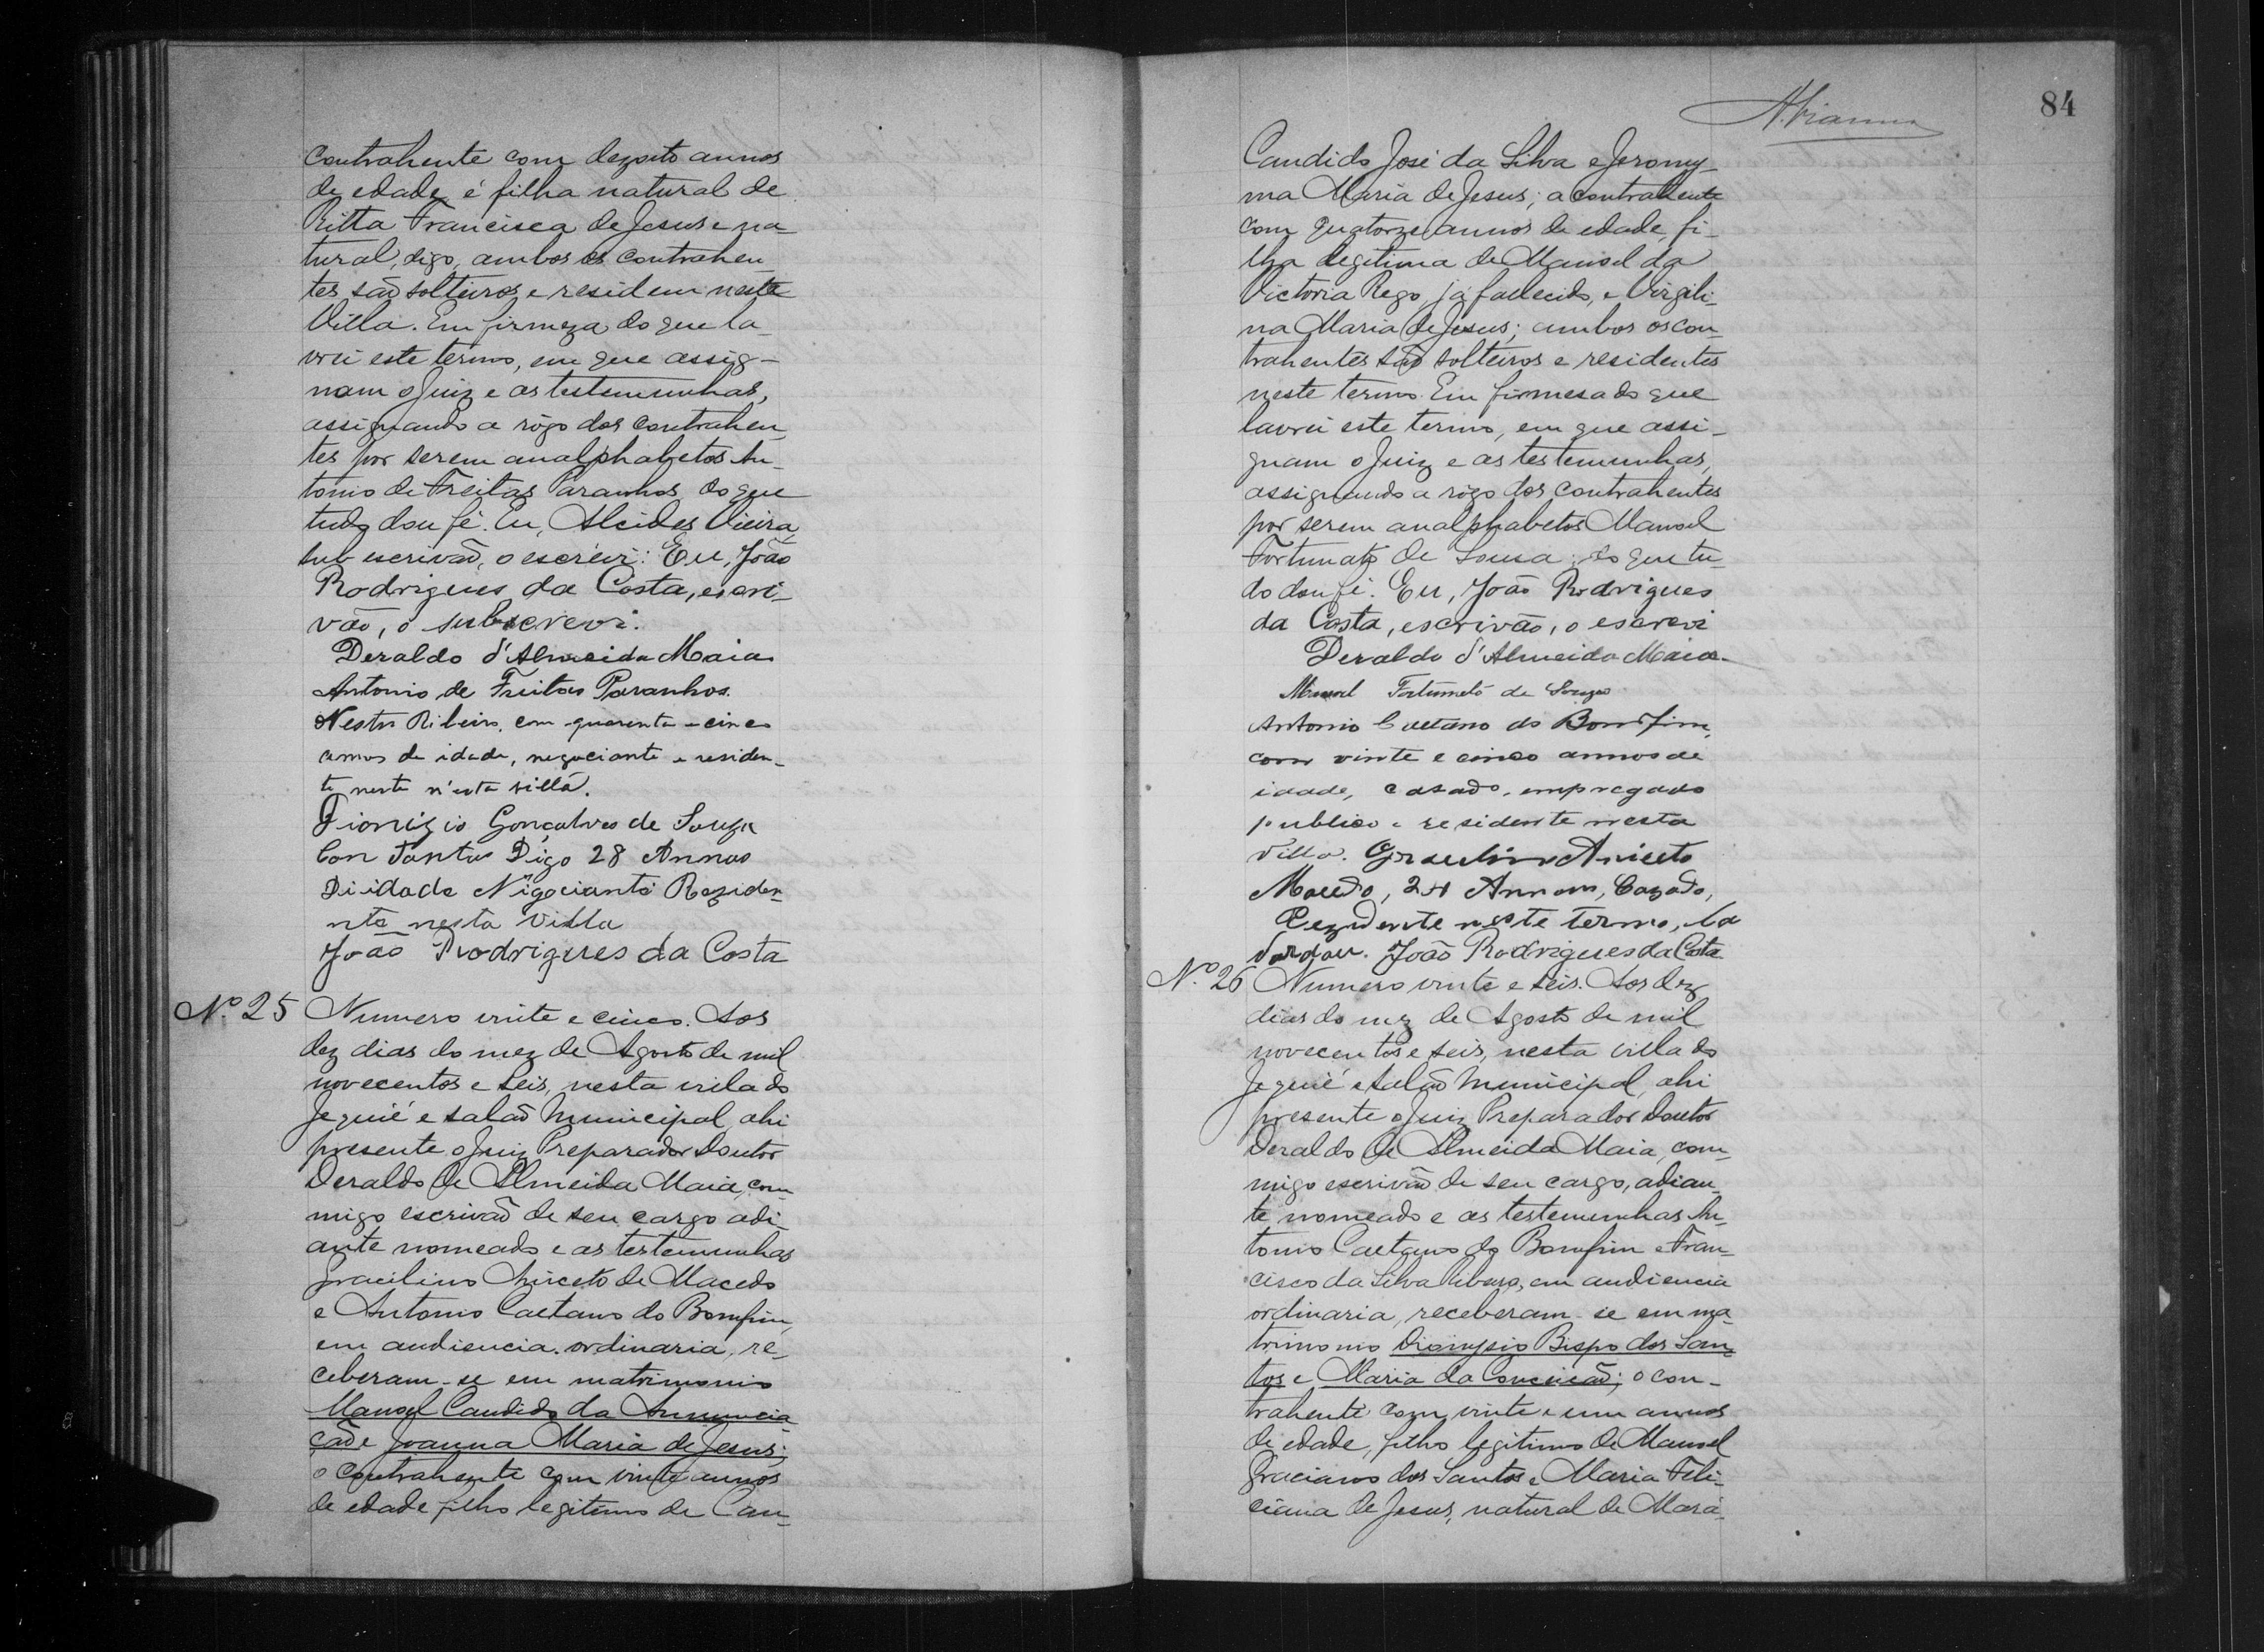 contrahente com dezoito annos
de edade, é filha natural de
Ritta Francisca de Jesus e na-
tural, digo, ambos os contrahen-
tes são solteiros e residem nesta
Villa. Em firmeza do que la-
vrei este termo, em que assig-
nam o Juiz e as testemunhas,
assignando a rôgo dos contrahen-
tes por serem analphabetos An-
tonio de Freitas Paranhos, do que
tudo dou fé. Eu, Alcides Vieira,
sub escrivão, o escrevi: Eu, João
Rodrigues da Costa, escri-
vão, o subscrevi.
Deraldo d'Almeida Maia
Antonio de Freitas Paranhos.
Nestor Ribeiro, com quarenta e cinco
annos de idade, negociante e residen-
te neste n'esta villa.
Dionizio Gonçalves de Souza
Con tantos Digo 28 Annos
Di idade Nigocianti Rezide-
nte nesta Villa
João Rodrigues da Costa
Nº 25 Numero vinte e cinco. Aos
dez dias do mez de Agosto de mil
novecentos e seis, nesta villa do
Jequié e salão Municipal, ahi
presente o Juiz Preparador Doutor
Deraldo de Almeida Maia, com-
migo escrivão de seu cargo adi-
ante nomeado e as testemunhas
Gracilino Aniceto de Macedo
e Antonio Caetano do Bomfim,
em audiencia ordinaria, re-
ceberam-se em matrimonio
Manoel Candido da Annuncia-
ção e Joanna Maria de Jesus;
o contrahente com vinte annos
de edade filho legitimo de Can-
84
A. Vianna
Candido José da Silva e Jerony-
ma Maria de Jesus; a contrahente
com quatorze annos de edade, fi-
lha legitima de Manoel da
Victoria Rego, já fallecido, e Virgili-
na Maria de Jesus; ambos os con-
trahentes são solteiros e residentes
neste termo. Em firmesa do que
lavrei este termo, em que assi-
gnam o Juiz e as testemunhas,
assignando a rôgo dos contrahentes
por serem analphabetos Manoel
Fortunato de Sousa; do que tu-
do dou fé. Eu, João Rodrigues
da Costa, escrivão, o escrevi
Deraldo d'Almeida Maia
Manoel Fortunato de Souza
Antonio Caetano do Bomfim,
com vinte e cinco annos de
idade, casado, empregado
publico e residente nesta
Villa. Graculino Aniceto
Macedo, 24 Annos, Cazado,
Rezidente neste termo, La
vrador. João Rodrigues da Costa
Nº 26 Numero vinte e seis. Aos dez
dias do mez de Agosto de mil
novecentos e seis, nesta villa do
Jequié e salão Municipal, ahi
presente o Juiz Preparador Doutor
Deraldo de Almeida Maia, com-
migo escrivão de seu cargo, adian-
te nomeado e as testemunhas An-
tonio Caetano do Bomfim e Fran-
cisco da Silva, em audiencia
ordinaria, receberam-se em ma-
trimonio Dionysio Bispo dos San-
tos e Maria da Conceição; o con-
trahente com vinte e um annos
de edade, filho legitimo de Manoel
Graciano dos Santos e Maria Feli-
ciana de Jesus, natural de Mara-